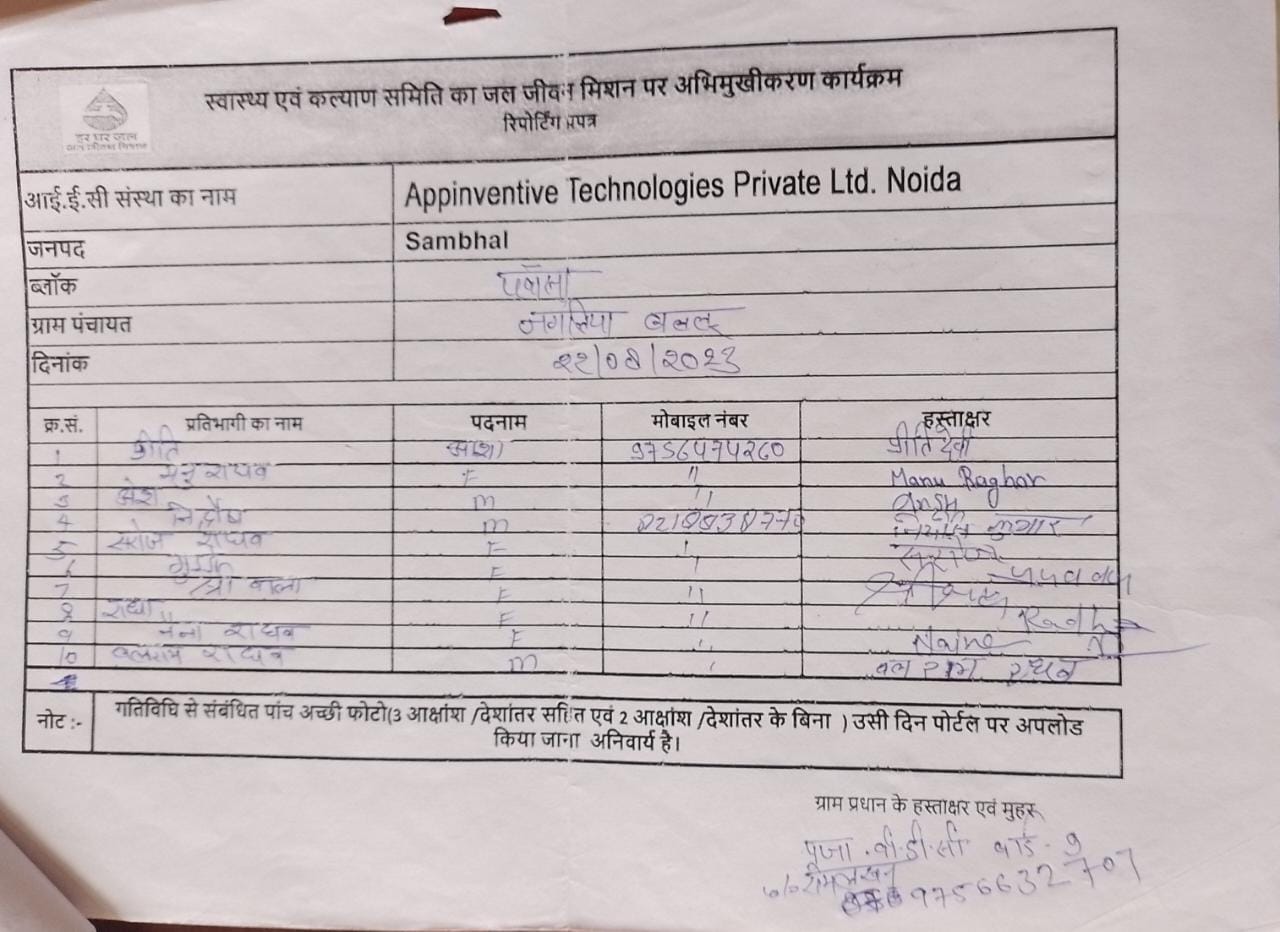 स्वास्थ्य एवं कल्याण समिति का जल जीवन मिशन पर अभिमुखीकरण कार्यक्रम
रिपोर्टिंग प्रपत्र
हर घर जल
जल जीवन मिशन
आई.ई.सी संस्था का नाम Appinventive Technologies Private Ltd. Noida
जनपद Sambhal
ब्लॉक पवांसा
ग्राम पंचायत
दिनांक २२/०८/२०२३
क्र.सं. प्रतिभागी का नाम पदनाम मोबाइल नंबर हस्ताक्षर
1 प्रीति आशा 9756474260 प्रीति देवी
2 मनु राघव F " Manu Raghav
3 अंश M " Ansh
4 निर्दोष M कुमार
5 सरोज राघव F "
6 F "
7 श्री बाला F "
8 राधा F " Radha
9 नैना राघव F " Naina
10 बलराम राघव M " बलराम राघव
नोट :- गतिविधि से संबंधित पांच अच्छी फोटो(3 आक्षांश /देशांतर सहित एवं 2 आक्षांश /देशांतर के बिना ) उसी दिन पोर्टल पर अपलोड
किया जाना अनिवार्य है।
ग्राम प्रधान के हस्ताक्षर एवं मुहर
पूजा .बी.डी.सी वार्ड - 9
w/o रामलखन
9756632707